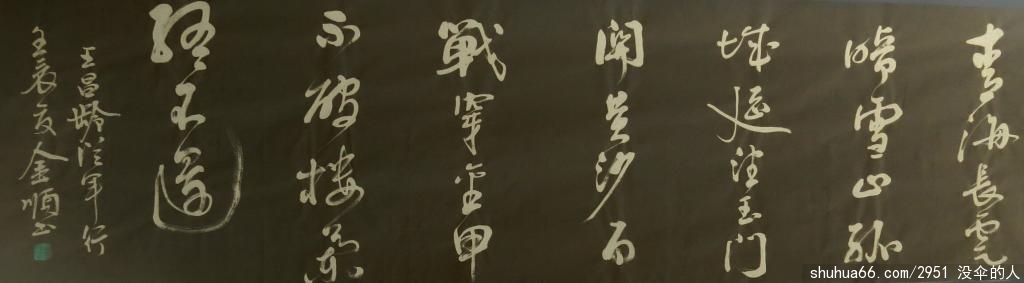 青海長雲
暗雪山孤
城遥望玉门
関黄沙百
戰穿金甲
不破楼蘭
終不還
王昌齡從軍行
壬辰夏金順书
shuhua66.com/2951 没伞的人